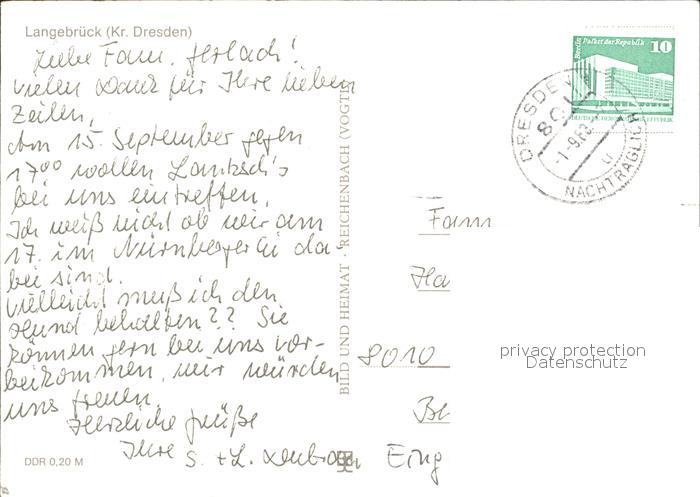 Langebrück (Kr. Dresden)
Liebe Fam. Gerlach!
vielen Dank für Ihre lieben
Zeilen,
Am 15. September gegen
17⁰⁰ wollen Lantzsch's
bei uns eintreffen.
Ich weiß nicht ob wir am
17. im Nürnberger Ei da-
bei sind.
Vielleicht muß ich den
Hund behalten?? Sie
können gern bei uns vor-
beikommen, wir würden
uns freuen.
Herzliche Grüße
Ihre S. + L.
DDR 0,20 M
BILD UND HEIMAT · REICHENBACH (VOGTL)
Berlin Palast der Republik
10
DRESDEN
801
-1.-9.83
NACHTRÄGLICH
Fam
Ha
8010
Be
Eing
privacy protection
Datenschutz